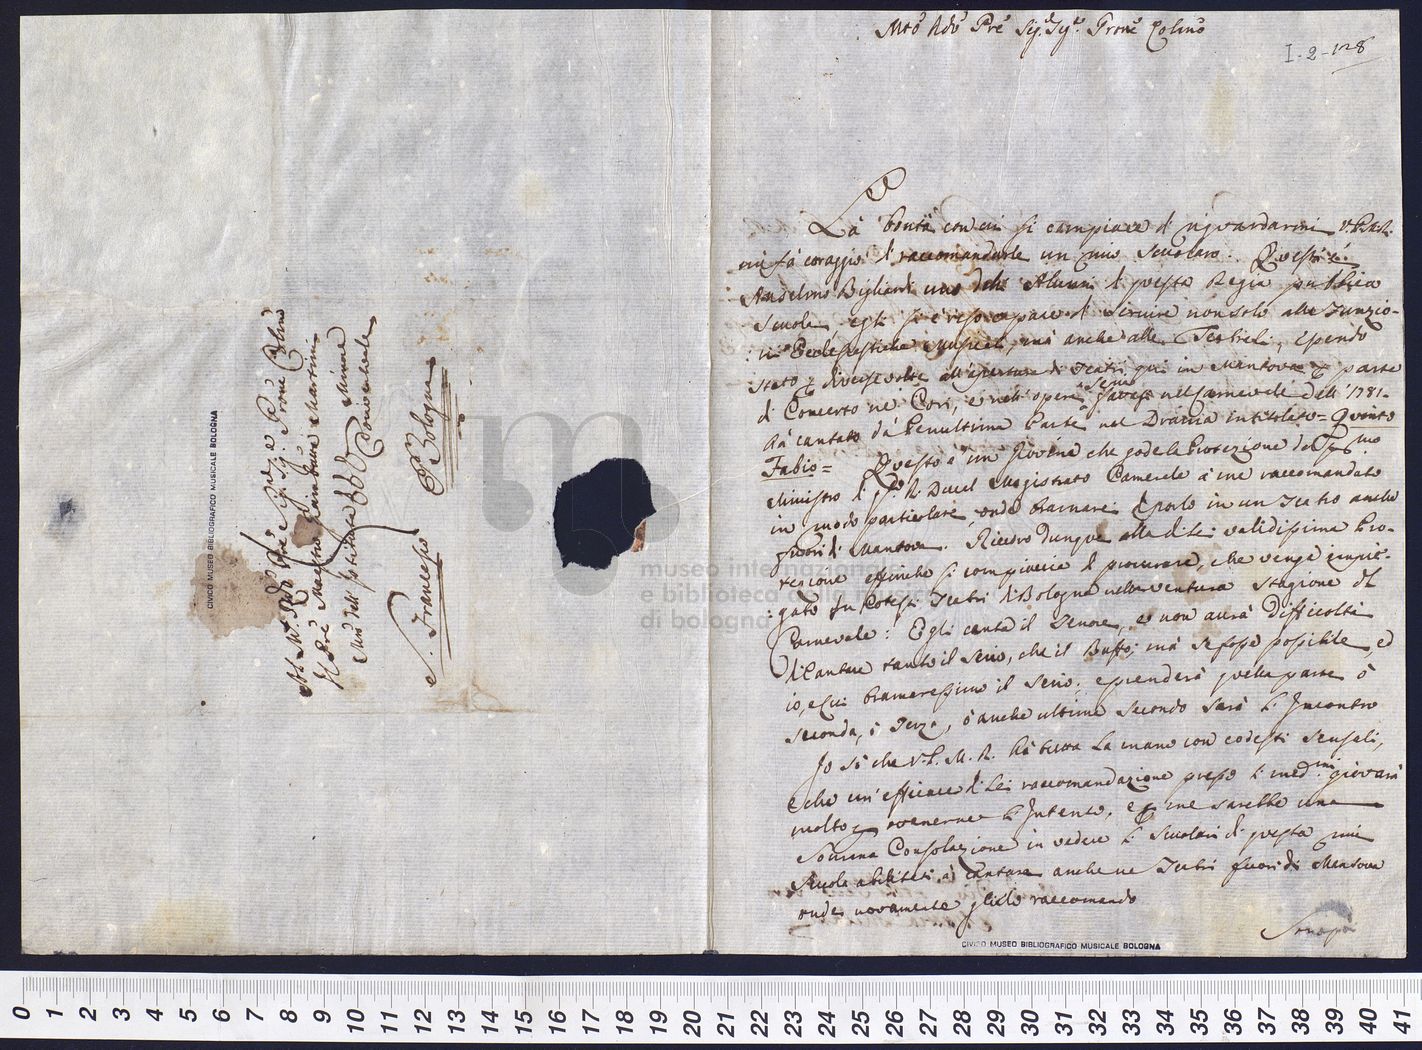 Mto Rdo Pre Sig.r Sig.r Prone Colmo
I-2-128
La bontà con cui si compiace di riguardarmi V. P. M. R.
mi fà coraggio di raccomandarle un mio Scuolaro. Questi è
Anselmo Bigliardi uno delli Alunni di questa Regia publica
Scuola, egli si è reso capace di servire non solo alle Funzio-
:ni Ecclesiastiche Musicali, mà anche alle Teatrali, essendo
stato diverse volte all'apertura di Teatri qui in Mantova parte
di Concerto ne' Cori, e nell'opera Seria fattasi nel Carnevale dell' 1781-
hà cantato da Penultima Parte nel Drama intitolato = Quinto
Fabio = Questo è un Giovine che gode la Protezione del
Ministro di Ducal Magistrato Camerale à me raccomandato
in modo particolare, onde bramarei esporlo in un Teatro anche
fuori di Mantova. Ricorro dunque alla di Lei validissima Pro-
tezione affinche si compiaccia di procurare, che venga impie-
:gato in Cotesti Teatri di Bologna nella ventura Stagione di
Carnevale: Egli canta il Tenore, e non avrà difficoltà
di Cantare tanto il Serio, che il Buffo; mà se fosse possibile, ed
io, e Lui bramaressimo il Serio; e prenderà quella parte ò
seconda, ò Terza, ò anche ultima secondo sarà l' Incontro
Io sò che V. P. M. R. hà tutta la mano con codesti Sensali,
e che un' efficace di Lei raccomandazione presso li med.mi giovarà
molto ottenerne l' Intento, e me sarebbe una
Somma Consolazione in vedere li Scuolari di questa mia
Scuola abilitati à Cantare anche ne Teatri fuori di Mantova
onde novamente glielo raccomando
CIVICO MUSEO BIBLIOGRAFICO MUSICALE BOLOGNA
Al M. Rdo Pre Sig.r Sig.r Prone Colmo
Il Pre Maestro Giambatta Martini
Min dell' Istituto Minore
Conventuale
S. Francesco Bologna
CIVICO MUSEO BIBLIOGRAFICO MUSICALE BOLOGNA
m
museo internazionale
e biblioteca della musica
di bologna
0 1 2 3 4 5 6 7 8 9 10 11 12 13 14 15 16 17 18 19 20 21 22 23 24 25 26 27 28 29 30 31 32 33 34 35 36 37 38 39 40 41